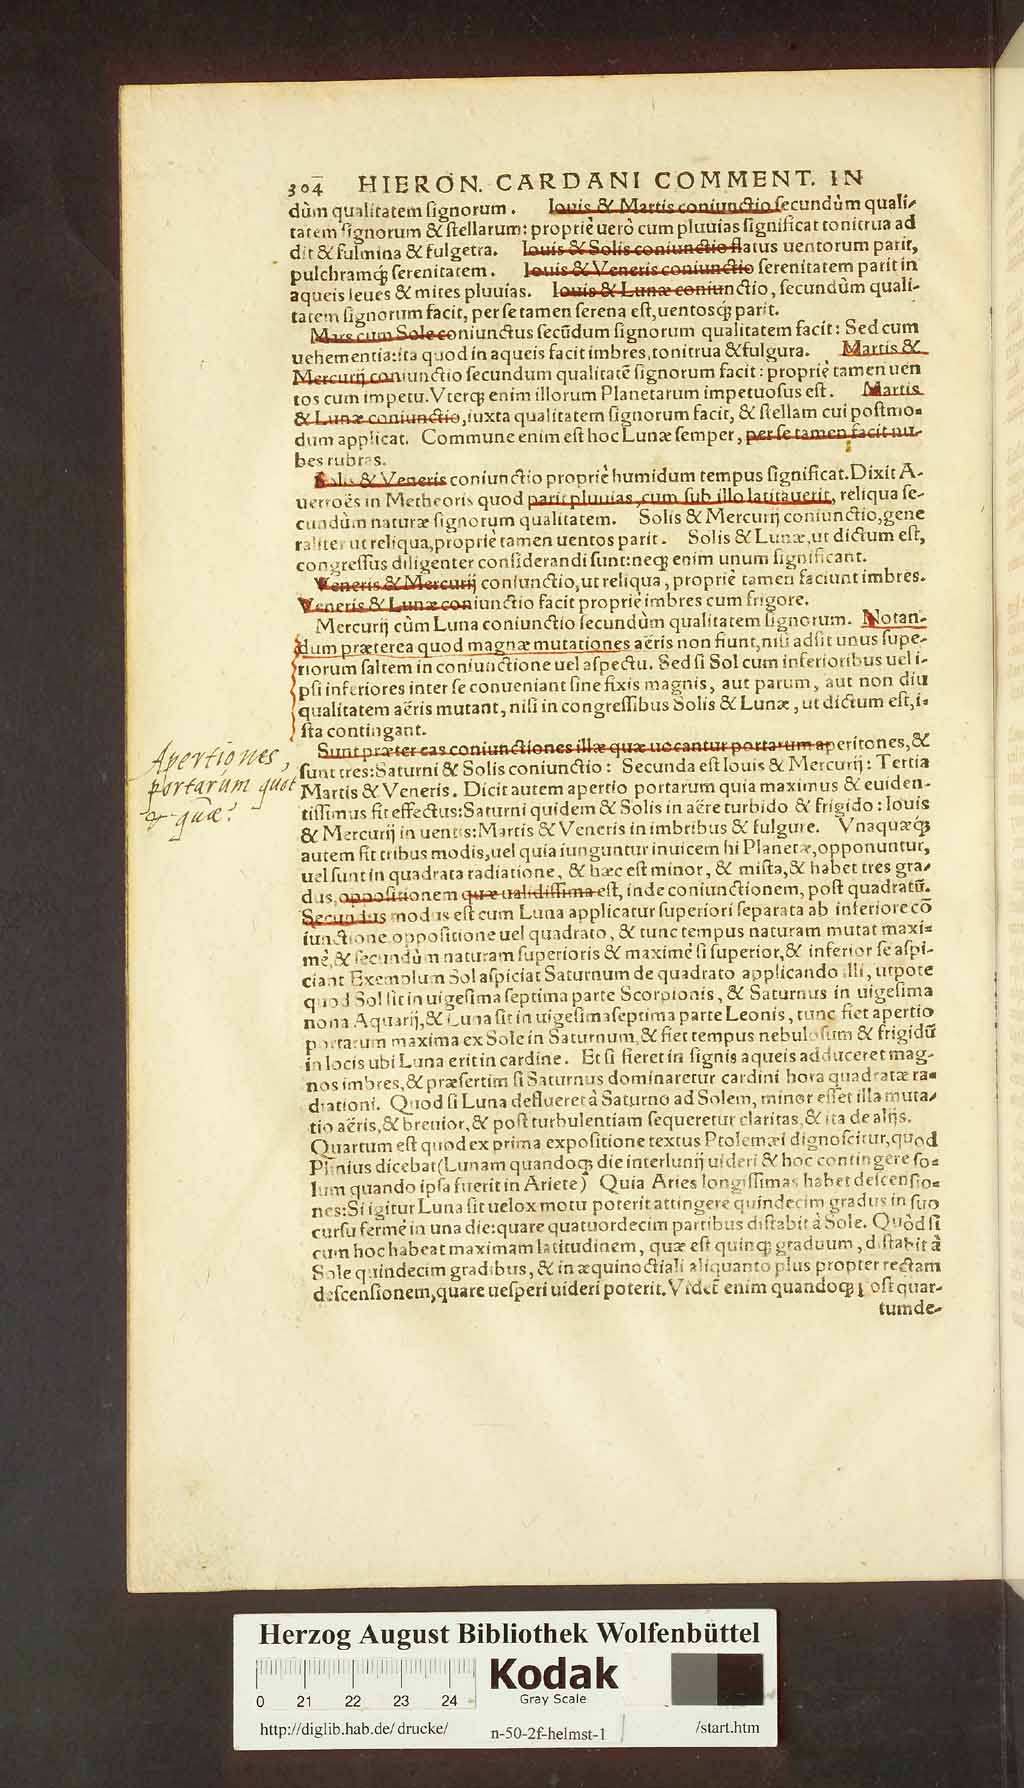 304 HIERON. CARDANI COMMENT. IN
dùm qualitatem ſignorum. Iouis & Martis coniunctio ſecundùm quali-
tatem ſignorum & ſtellarum: propriè uerò cum pluuias ſignificat tonitrua ad
dit & fulmina & fulgetra. Iouis & Solis coniunctio flatus uentorum parit,
pulchramq́; ſerenitatem. Iouis & Veneris coniunctio ſerenitatem parit in
aqueis leues & mites pluuias. Iouis & Lunæ coniunctio, ſecundùm quali-
tatem ſignorum facit, per ſe tamen ſerena eſt, uentosq́; parit.
Mars cum Sole coniunctus ſecūdum ſignorum qualitatem facit: Sed cum
uehementia: ita quod in aqueis facit imbres, tonitrua & fulgura. Martis &
Mercurij coniunctio ſecundum qualitatē ſignorum facit: propriè tamen uen
tos cum impetu. Vterq; enim illorum Planetarum impetuoſus eſt. Martis
& Lunæ coniunctio, iuxta qualitatem ſignorum facit, & ſtellam cui poſtmo-
dum applicat. Commune enim eſt hoc Lunæ ſemper, per ſe tamen facit nu-
bes rubras.
Solis & Veneris coniunctio propriè humidum tempus ſignificat. Dixit A-
uerroës in Metheoris quod parit pluuias, cum ſub illo latitauerit, reliqua ſe-
cundùm naturæ ſignorum qualitatem. Solis & Mercurij coniunctio, gene
raliter ut reliqua, propriè tamen uentos parit. Solis & Lunæ, ut dictum eſt,
congreſſus diligenter conſiderandi ſunt: neq; enim unum ſignificant.
Veneris & Mercurij coniunctio, ut reliqua, propriè tamen faciunt imbres.
Veneris & Lunæ coniunctio facit propriè imbres cum frigore.
Mercurij cùm Luna coniunctio ſecundùm qualitatem ſignorum. Notan-
dum præterea quod magnæ mutationes aëris non fiunt, niſi adſit unus ſupe-
riorum ſaltem in coniunctione uel aſpectu. Sed ſi Sol cum inferioribus uel i-
pſi inferiores inter ſe conueniant ſine fixis magnis, aut parum, aut non diu
qualitatem aëris mutant, niſi in congreſſibus Solis & Lunæ, ut dictum eſt, i-
ſta contingant.
Sunt præter eas coniunctiones illæ quæ uocantur portarum aperitones, &
ſunt tres: Saturni & Solis coniunctio: Secunda eſt Iouis & Mercurij: Tertia
Martis & Veneris. Dicit autem apertio portarum quia maximus & euiden-
tiſſimus fit effectus: Saturni quidem & Solis in aëre turbido & frigido: Iouis
& Mercurij in uentis: Martis & Veneris in imbribus & fulgure. Vnaquæq́;
autem fit tribus modis, uel quia iunguntur inuicem hi Planetæ, opponuntur,
uel ſunt in quadrata radiatione, & hæc eſt minor, & miſta, & habet tres gra-
dus, oppoſitionem quæ ualidiſſima eſt, inde coniunctionem, poſt quadratū.
Secundus modus eſt cum Luna applicatur ſuperiori ſeparata ab inferiore cō
iunctione oppoſitione uel quadrato, & tunc tempus naturam mutat maxi-
mè, & ſecundùm naturam ſuperioris & maximè ſi ſuperior, & inferior ſe aſpi-
ciant Exemplum Sol aſpiciat Saturnum de quadrato applicando illi, utpote
quod Sol ſit in uigeſima ſeptima parte Scorpionis, & Saturnus in uigeſima
nona Aquarij, & Luna ſit in uigeſimaſeptima parte Leonis, tunc fiet apertio
portarum maxima ex Sole in Saturnum, & fiet tempus nebuloſum & frigidū
in locis ubi Luna erit in cardine. Et ſi fieret in ſignis aqueis adduceret mag-
nos imbres, & præſertim ſi Saturnus dominaretur cardini hora quadratæ ra-
diationi. Quod ſi Luna deflueret à Saturno ad Solem, minor eſſet illa muta-
tio aëris, & breuior, & poſt turbulentiam ſequeretur claritas, & ita de alijs.
Quartum eſt quod ex prima expoſitione textus Ptolemæi dignoſcitur, quod
Plinius dicebat (Lunam quandoq; die interlunij uideri & hoc contingere ſo-
lum quando ipſa fuerit in Ariete) Quia Aries longiſſimas habet deſcenſio-
nes: Si igitur Luna ſit uelox motu poterit attingere quindecim gradus in ſuo
curſu fermè in una die: quare quatuordecim partibus diſtabit à Sole. Quòd ſi
cum hoc habeat maximam latitudinem, quæ eſt quinq; graduum, diſtabit à
Sole quindecim gradibus, & in æquinoctiali aliquanto plus propter rectam
deſcenſionem, quare ueſperi uideri poterit. Videt̄ enim quandoq; poſt quar-
tum de-
Apertiones,
portarum quot
& quæ?
Herzog August Bibliothek Wolfenbüttel
Kodak
Gray Scale
0 21 22 23 24
http://diglib.hab.de/drucke/ n-50-2f-helmst-1 /start.htm